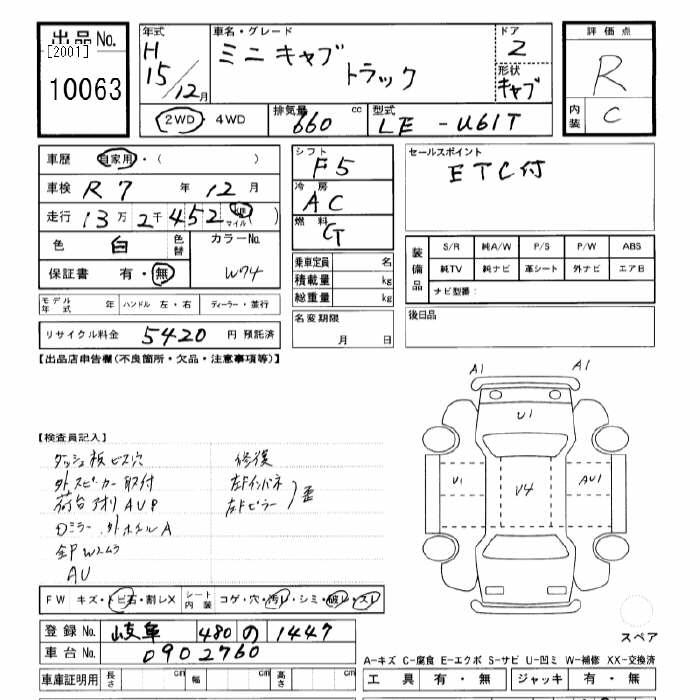 出品No.
[2001]
10063
年式 車名・グレード ドア 評価点
H 15/12月 ミニキャブ トラック 2 R
形状 キャブ
内装 C
2WD・4WD 排気量 660 cc 型式 LE-U61T
車歴 自家用・( )
車検 R7 年 12 月
走行 13万2千452 km マイル ( )
色 白 色替 カラーNo. W74
保証書 有・無
モデル年式 年 ハンドル 左・右 ディーラー・並行
リサイクル料金 5420 円 預託済
シフト F5
冷房 AC
燃料 G
乗車定員 名
積載量 kg
総重量 kg
名変期限
月 日
セールスポイント
ETC付
装備品 S/R 純A/W P/S P/W ABS
純TV 純ナビ 革シート 外ナビ エアB
ナビ型番:
後日品
【出品店申告欄(不良箇所・欠品・注意事項等)】
【検査員記入】
ダッシュ板ビス穴 修復
外スピーカー取付 左ドインパネ
荷台アオリAUP 左ドピラー 歪
Dミラー、外ホイルA
全PWムラ
AU
A1 A1
U1
U1 V4 AU1
スペア
FW キズ・トビ石・割レX シート内装 コゲ・穴・汚レ・シミ・破レ・スレ
登録No. 岐阜 480 の 1447
車台No. 0902760
車庫証明用 長さ cm 幅 cm 高さ cm
A-キズ C-腐食 E-エクボ S-サビ U-凹ミ W-補修 XX-交換済
工具 有・無 ジャッキ 有・無